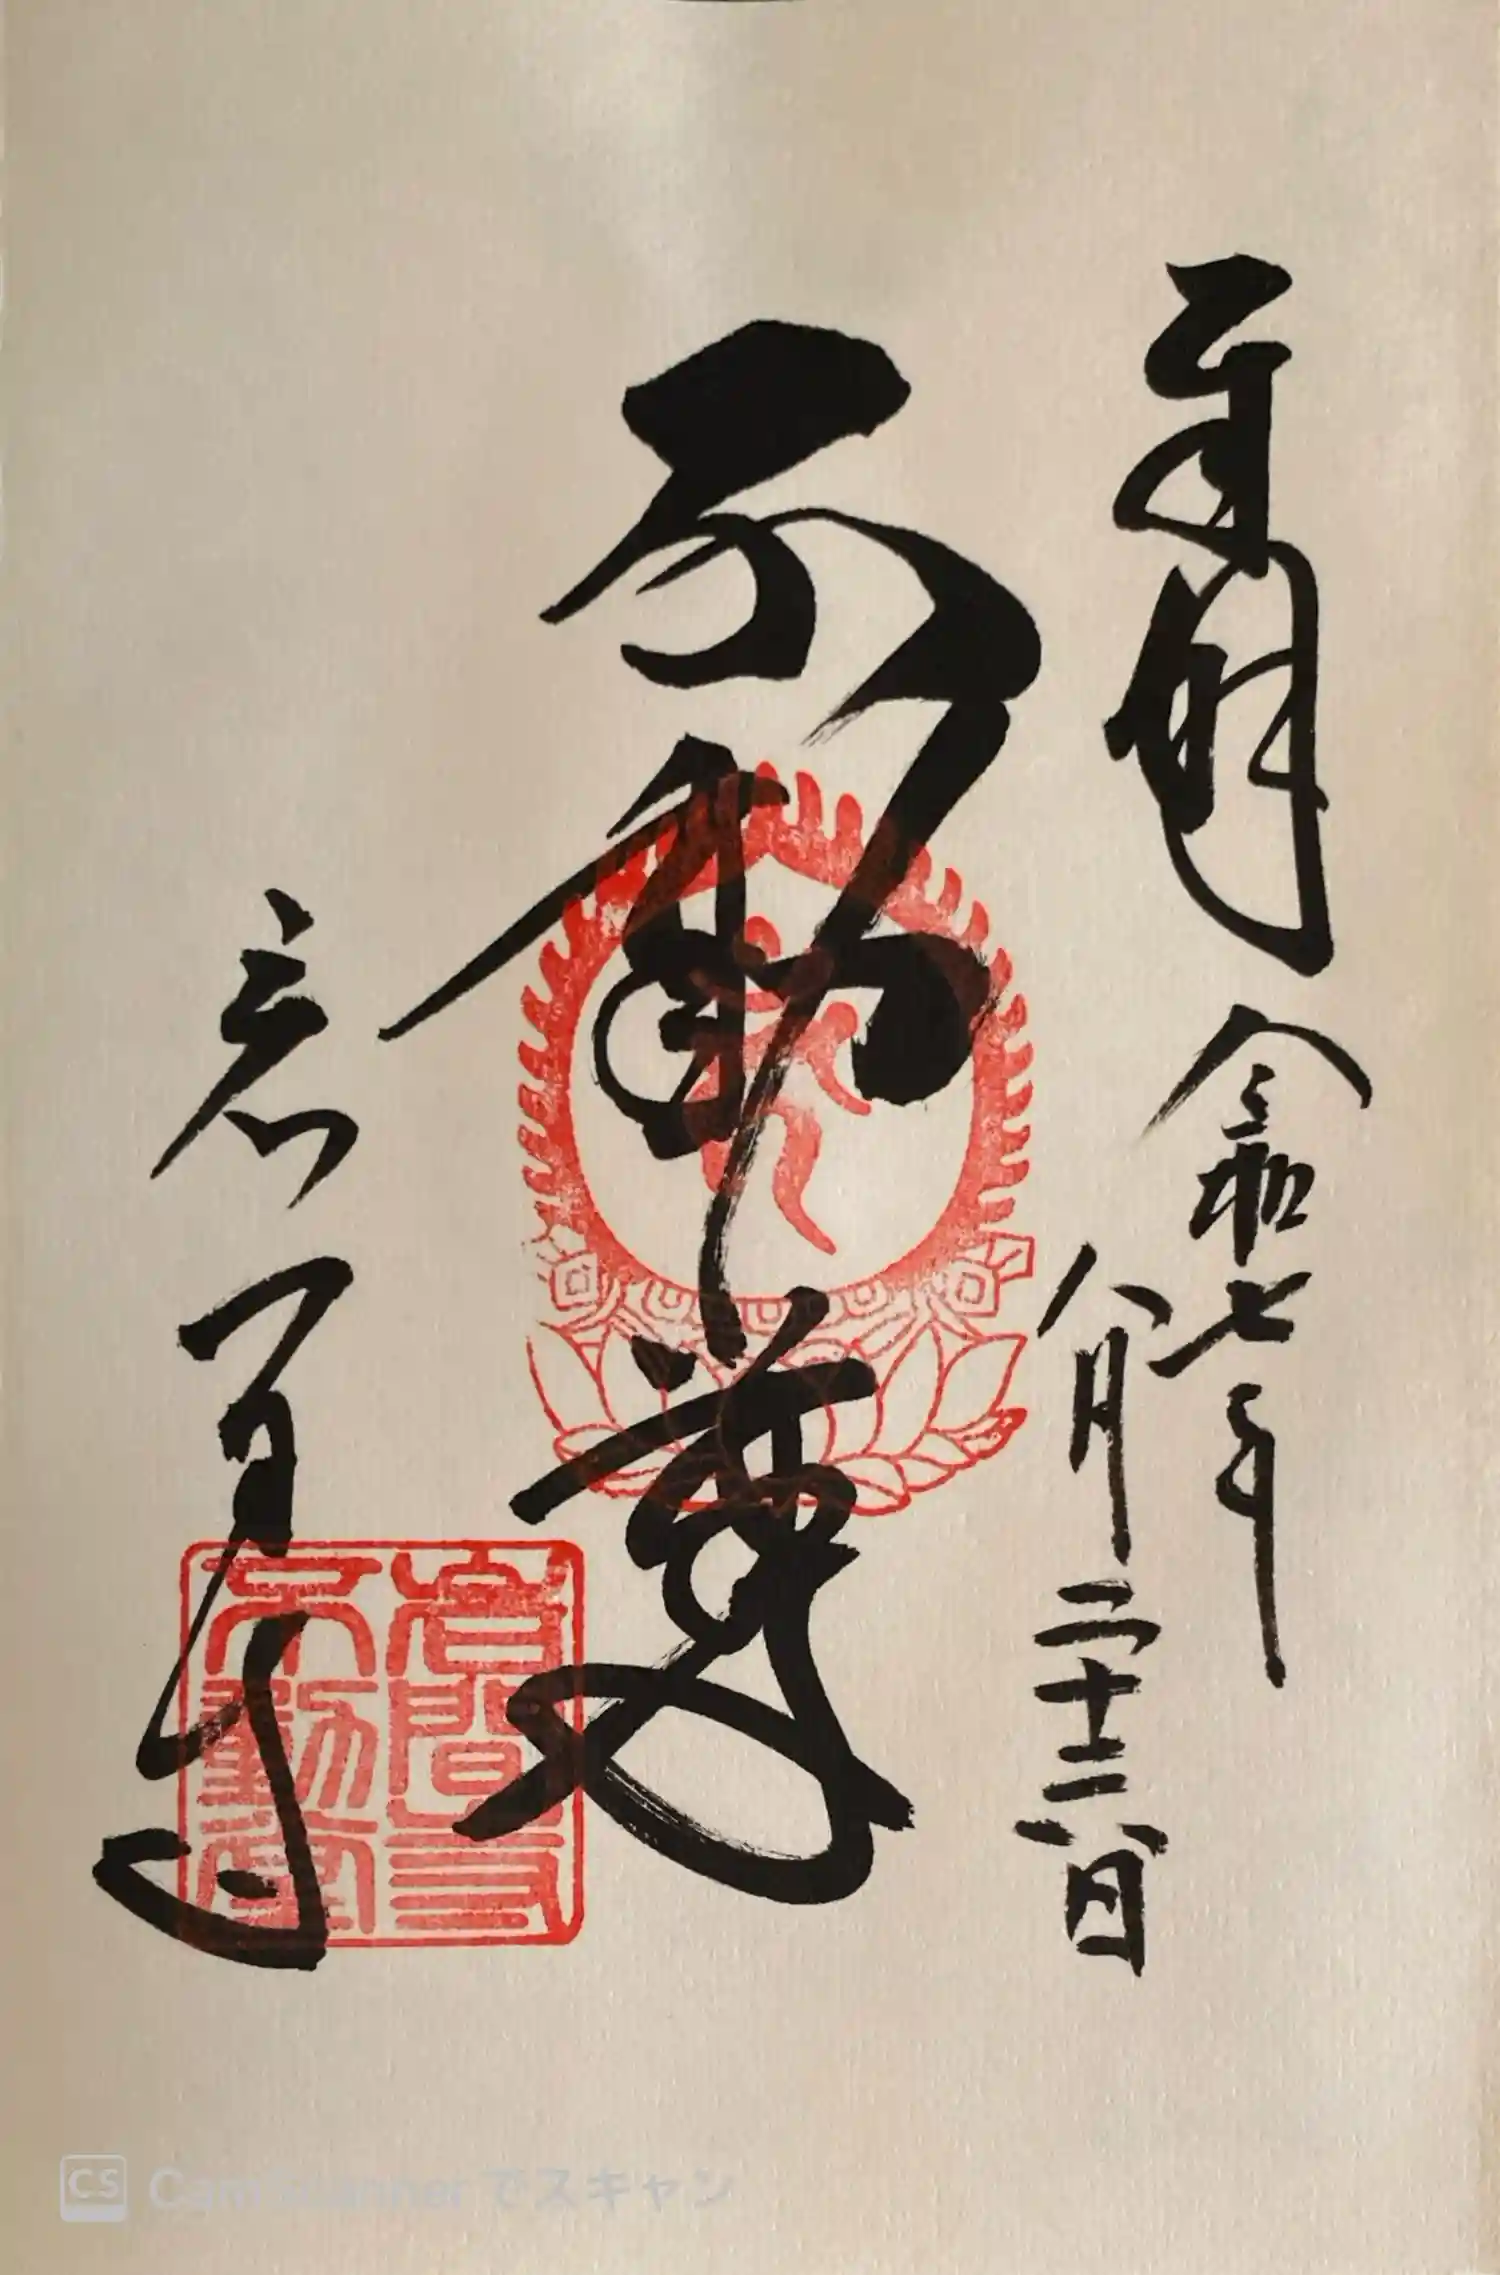 奉拝
令和七年
八月二十三日
不動尊
岩間寺
不動堂
CS CamScanner でスキャン